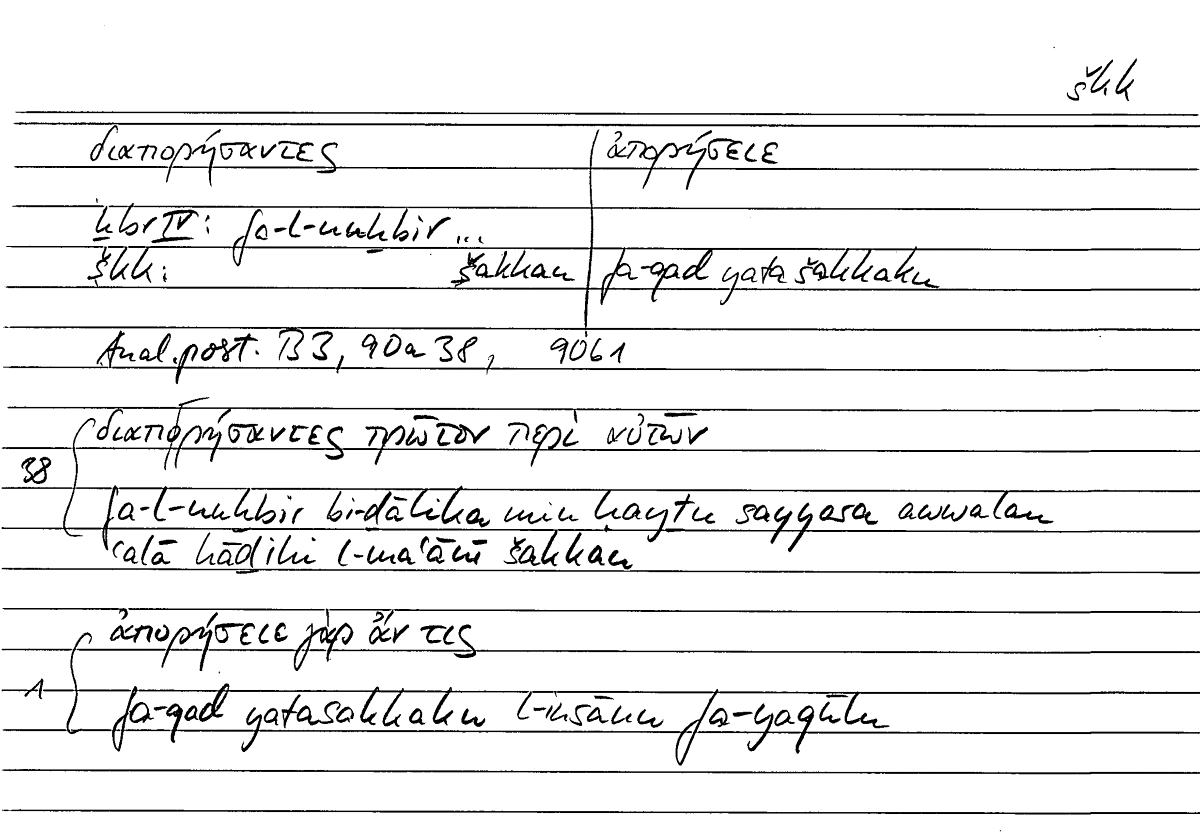 škk
διαπορήσαντες | ἀπορήσειε
ḫbr IV: fa-l-nuḫbir ...
škk: šakkan | fa-qad yatašakkaku
Anal. post. B3, 90a38, 90b1
διαπορήσαντες πρῶτον περὶ αὐτῶν
38
fa-l-nuḫbir bi-ḏālika min ḥayṯu
awwalan
ʿalā hāḏihi l-maʿānī šakkan
ἀπορήσειε γὰρ ἄν τις
1
fa-qad yatasakkaku l-insānu fa-yaqūlu